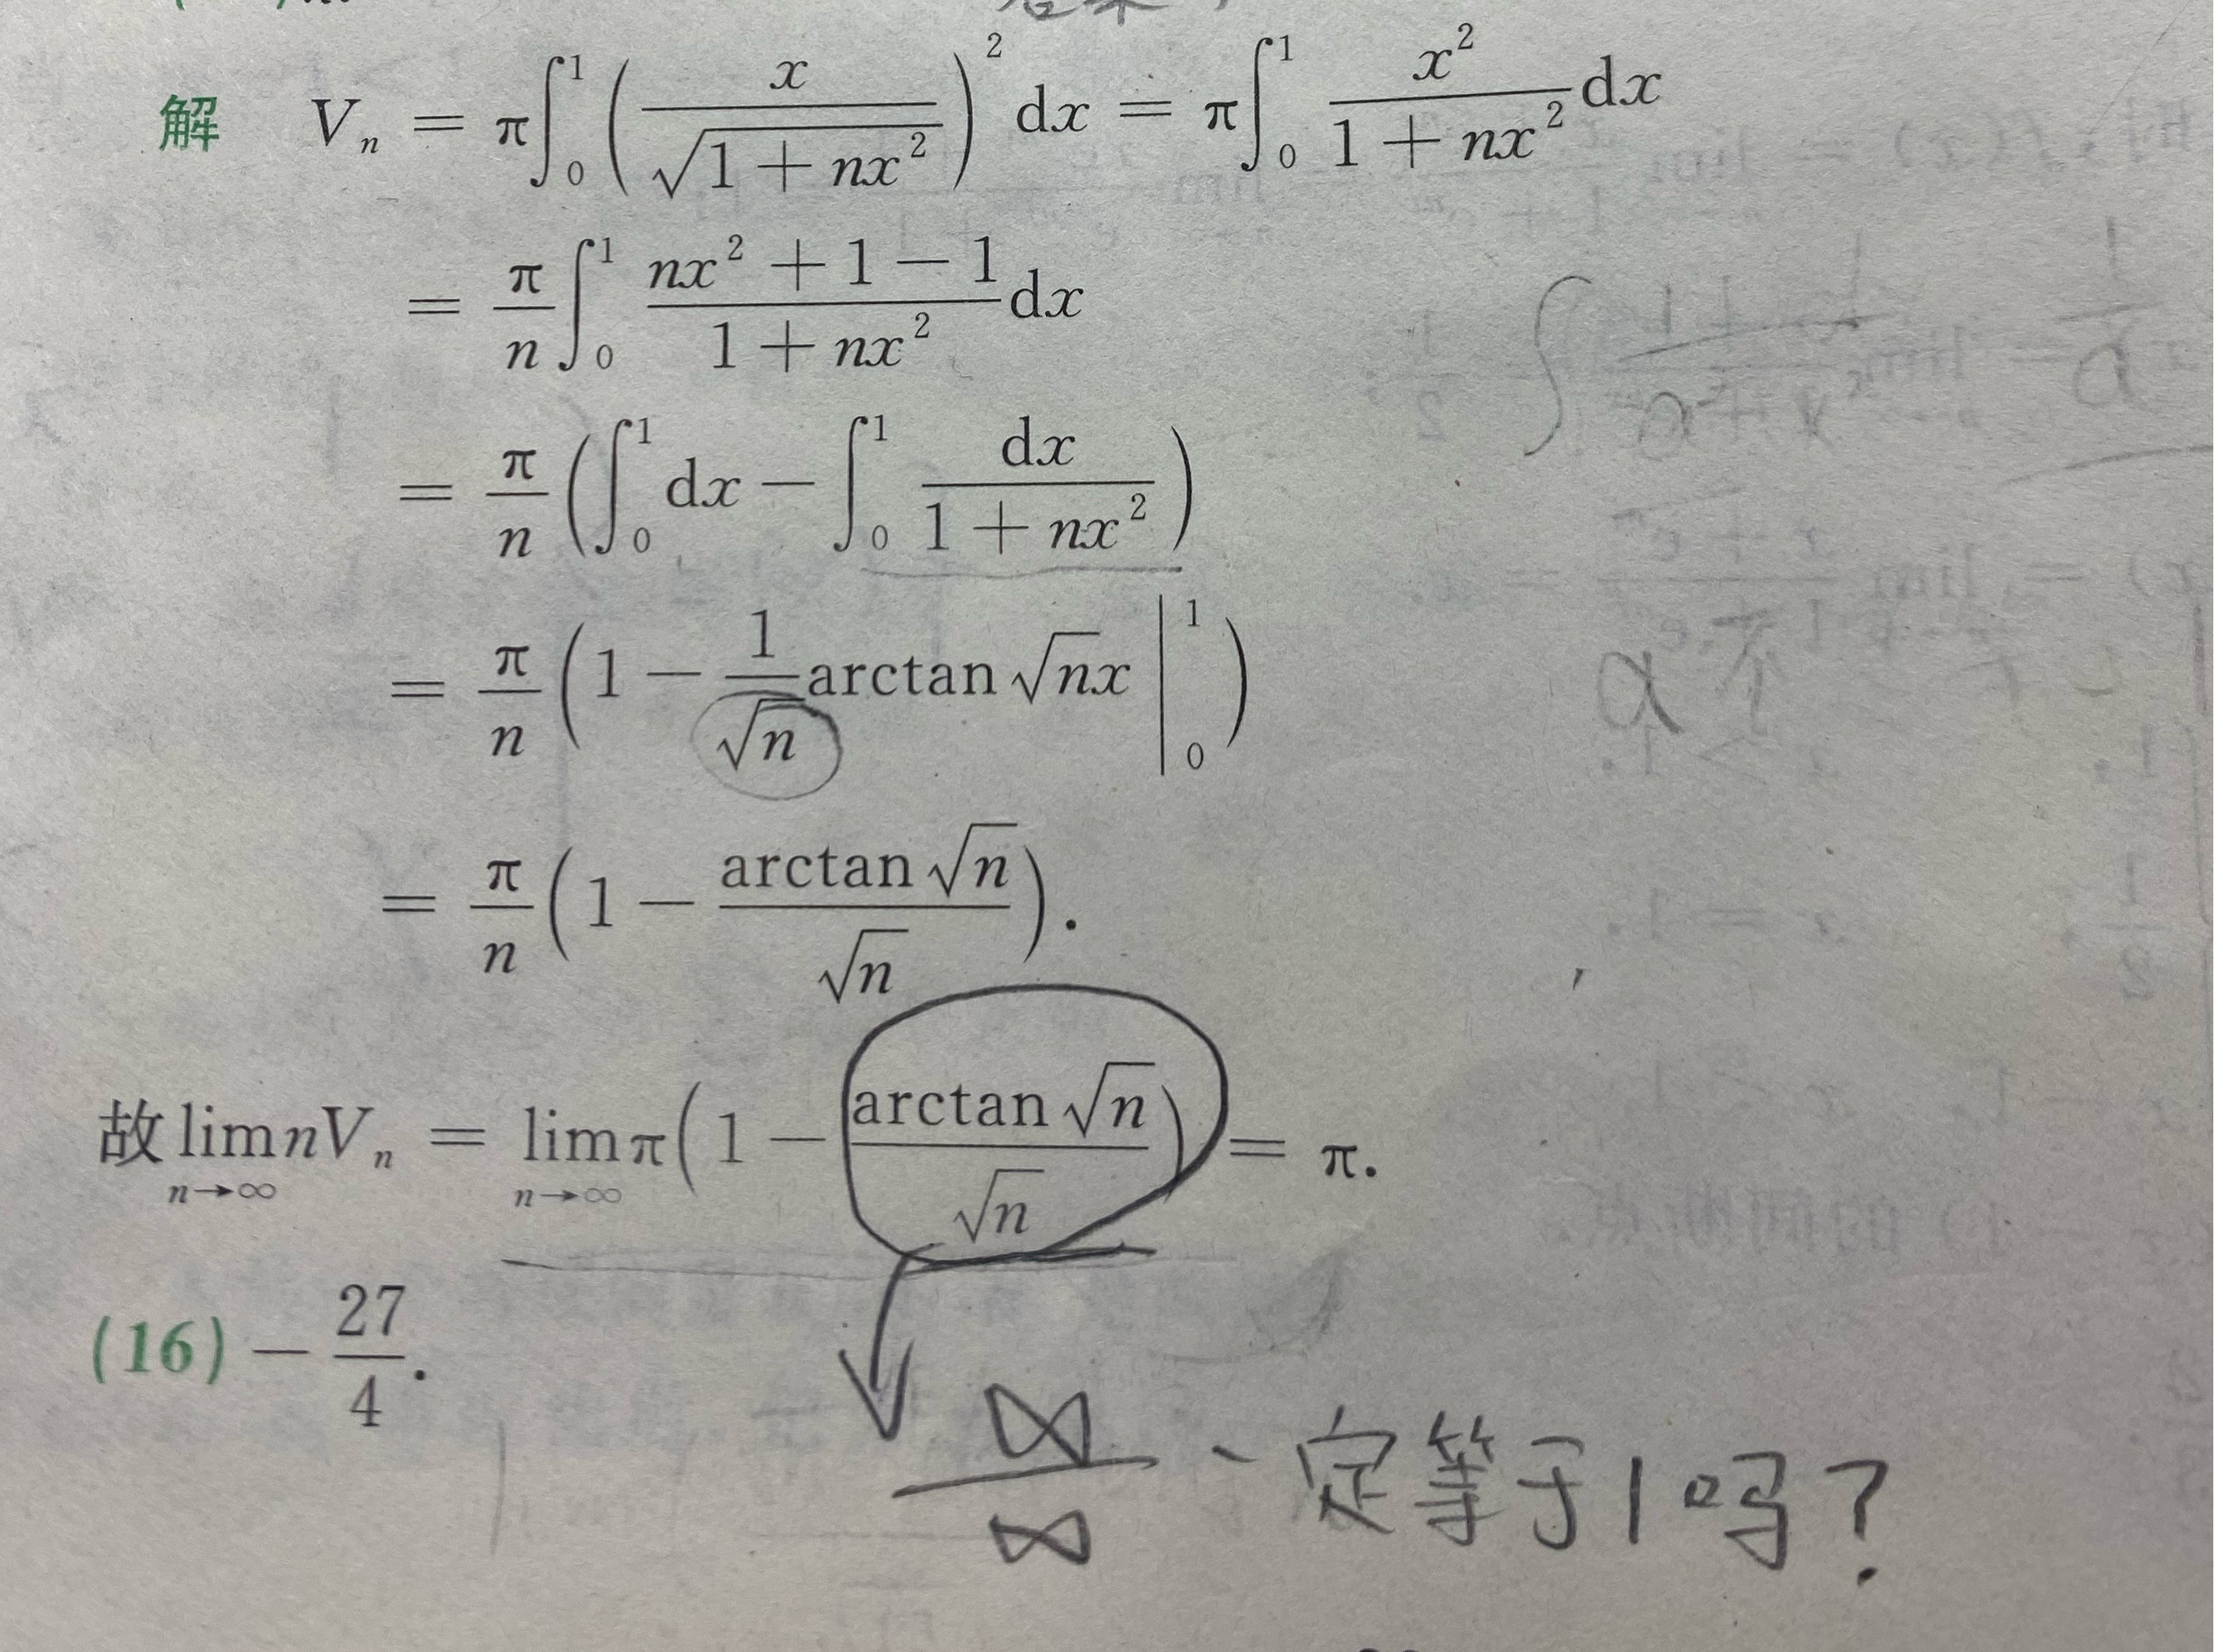 解 Vₙ = π∫₀¹ (x/√(1 + nx²))² dx = π∫₀¹ x²/(1 + nx²) dx
= π/n ∫₀¹ (nx² + 1 − 1)/(1 + nx²) dx
= π/n (∫₀¹ dx − ∫₀¹ dx/(1 + nx²))
= π/n (1 − 1/√n arctan √nx |₀¹)
= π/n (1 − arctan √n/√n).
故 lim_{n→∞} nVₙ = lim_{n→∞} π(1 − arctan √n/√n) = π.
(16) − 27/4.
∞/∞ 一定等于1吗?